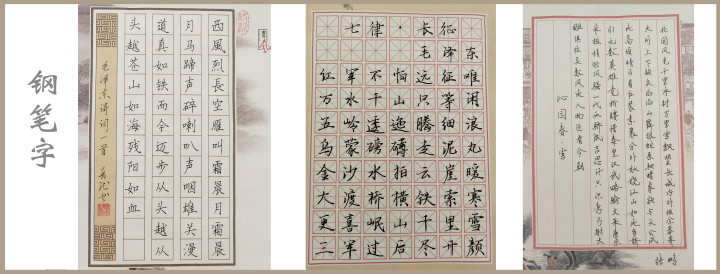 钢笔字
西風烈長空雁叫霜晨月霜晨
月马蹄声碎喇叭声咽雄关漫
道真如铁而今迈步从头越从
头越苍山如海残阳如血
毛泽东诗词一首
七律·长征
毛泽东
红军不怕远征难
万水千山只等闲
五岭逶迤腾细浪
乌蒙磅礴走泥丸
金沙水拍云崖暖
大渡桥横铁索寒
更喜岷山千里雪
三军过后尽开颜
北国风光千里冰封万里雪飘望长城内外惟余莽莽
大河上下顿失滔滔山舞银蛇原驰蜡象欲与天公试
比高须晴日看红装素裹分外妖娆江山如此多娇
引无数英雄竞折腰惜秦皇汉武略输文采唐宗
宋祖稍逊风骚一代天骄成吉思汗只识弯弓射大
雕俱往矣数风流人物还看今朝
沁园春